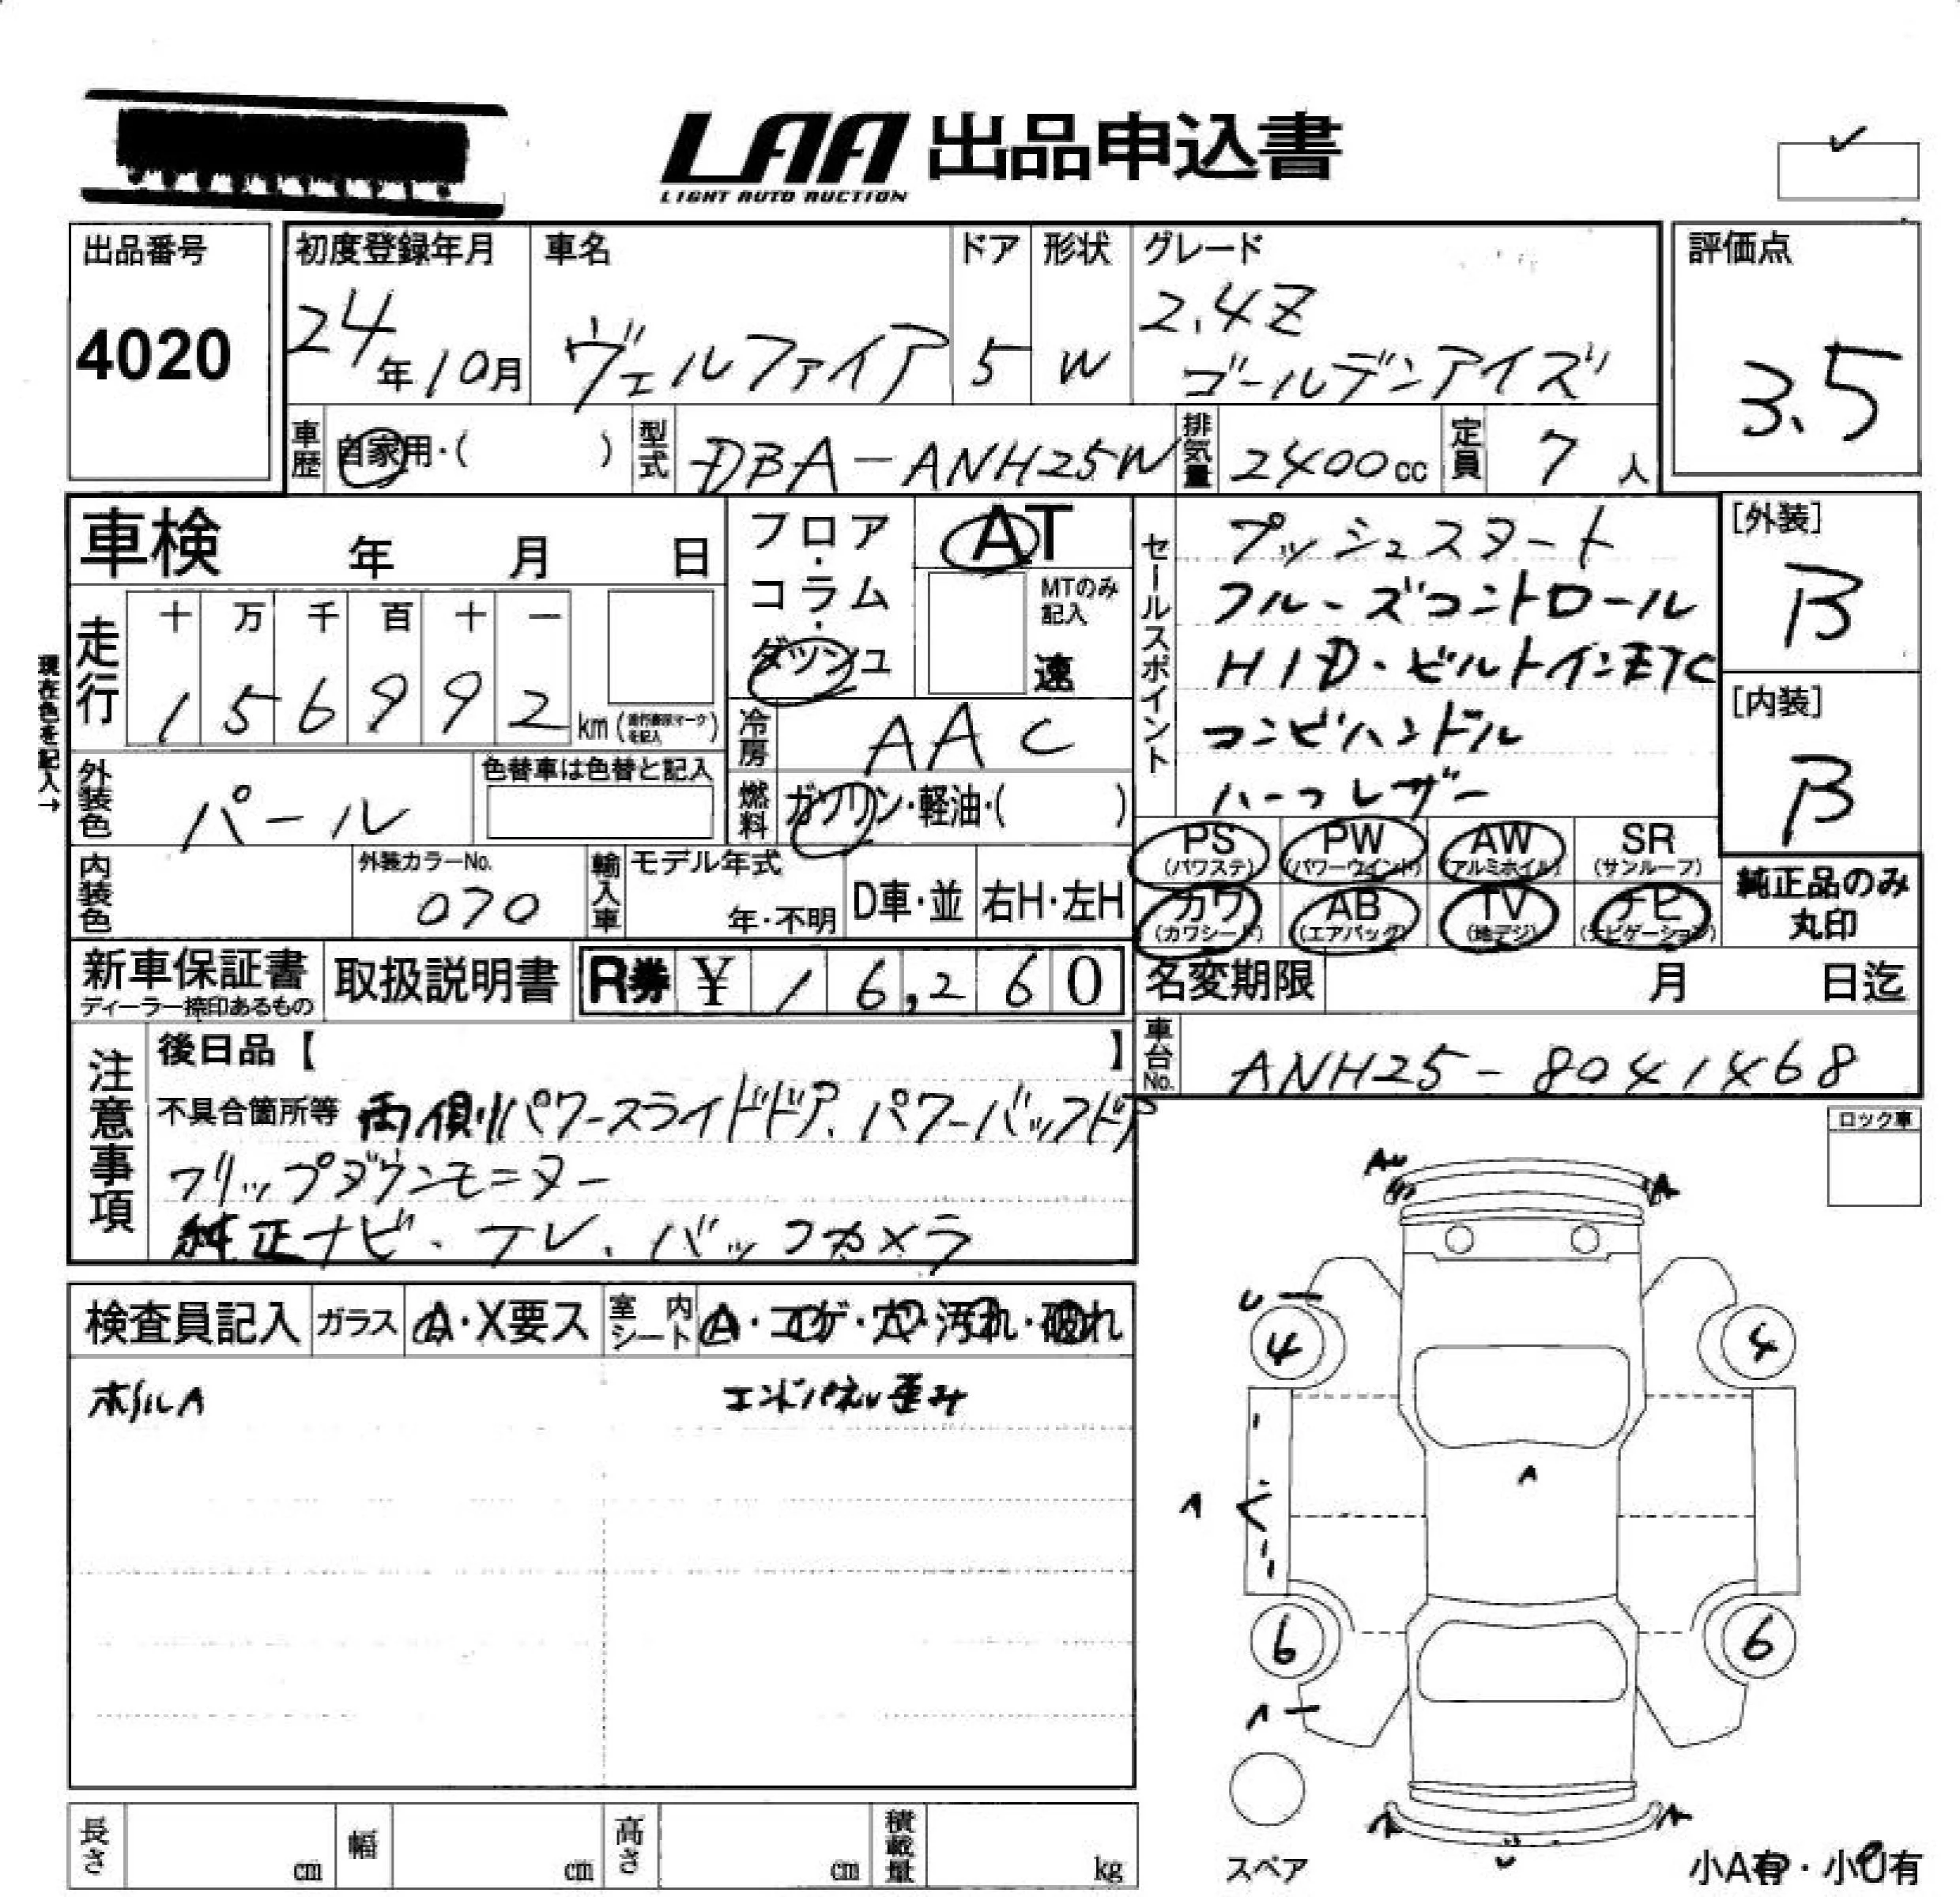 LAA 出品申込書
LIGHT AUTO AUCTION
出品番号
4020
初度登録年月
24年10月
車名
ヴェルファイア
ドア
5
形状
W
グレード
2.4Z
ゴールデンアイズ
評価点
3.5
車歴 自家用・( )
型式 DBA-ANH25W
排気量 2400cc
定員 7人
車検 年 月 日
フロア・コラム・ダッシュ
AT
MTのみ記入
速
セールスポイント
プッシュスタート
クルーズコントロール
HID・ビルトインETC
コンビハンドル
ハーフレザー
[外装]
B
[内装]
B
現在色を記入→
走行
十 万 千 百 十 一
1 5 6 9 9 2 km
冷房 AAC
外装色 パール
色替車は色替と記入
燃料 ガソリン・軽油・( )
PS (パワステ)
PW (パワーウインド)
AW (アルミホイル)
SR (サンルーフ)
カワ (カワシート)
AB (エアバック)
TV (地デジ)
ナビ (ナビゲーション)
純正品のみ丸印
内装色
外装カラーNo.
070
輸入車
モデル年式
年・不明
D車・並
右H・左H
新車保証書
ディーラー捺印あるもの
取扱説明書
R券 ¥ 16,260
名変期限 月 日迄
車台No. ANH25-8041468
注意事項
後日品【 】
不具合箇所等 両側パワースライドドア、パワーバックドア
フリップダウンモニター
純正ナビ、テレ、バックカメラ
ロック車
検査員記入
ガラス A・X要ス
室内シート A・コゲ・穴・汚れ・破れ
ホイルA
エンドパネル歪み
AU
A
U
4
4
A
A
6
6
A
A
A
U
スペア
小A有・小U有
長さ cm
幅 cm
高さ cm
積載量 kg